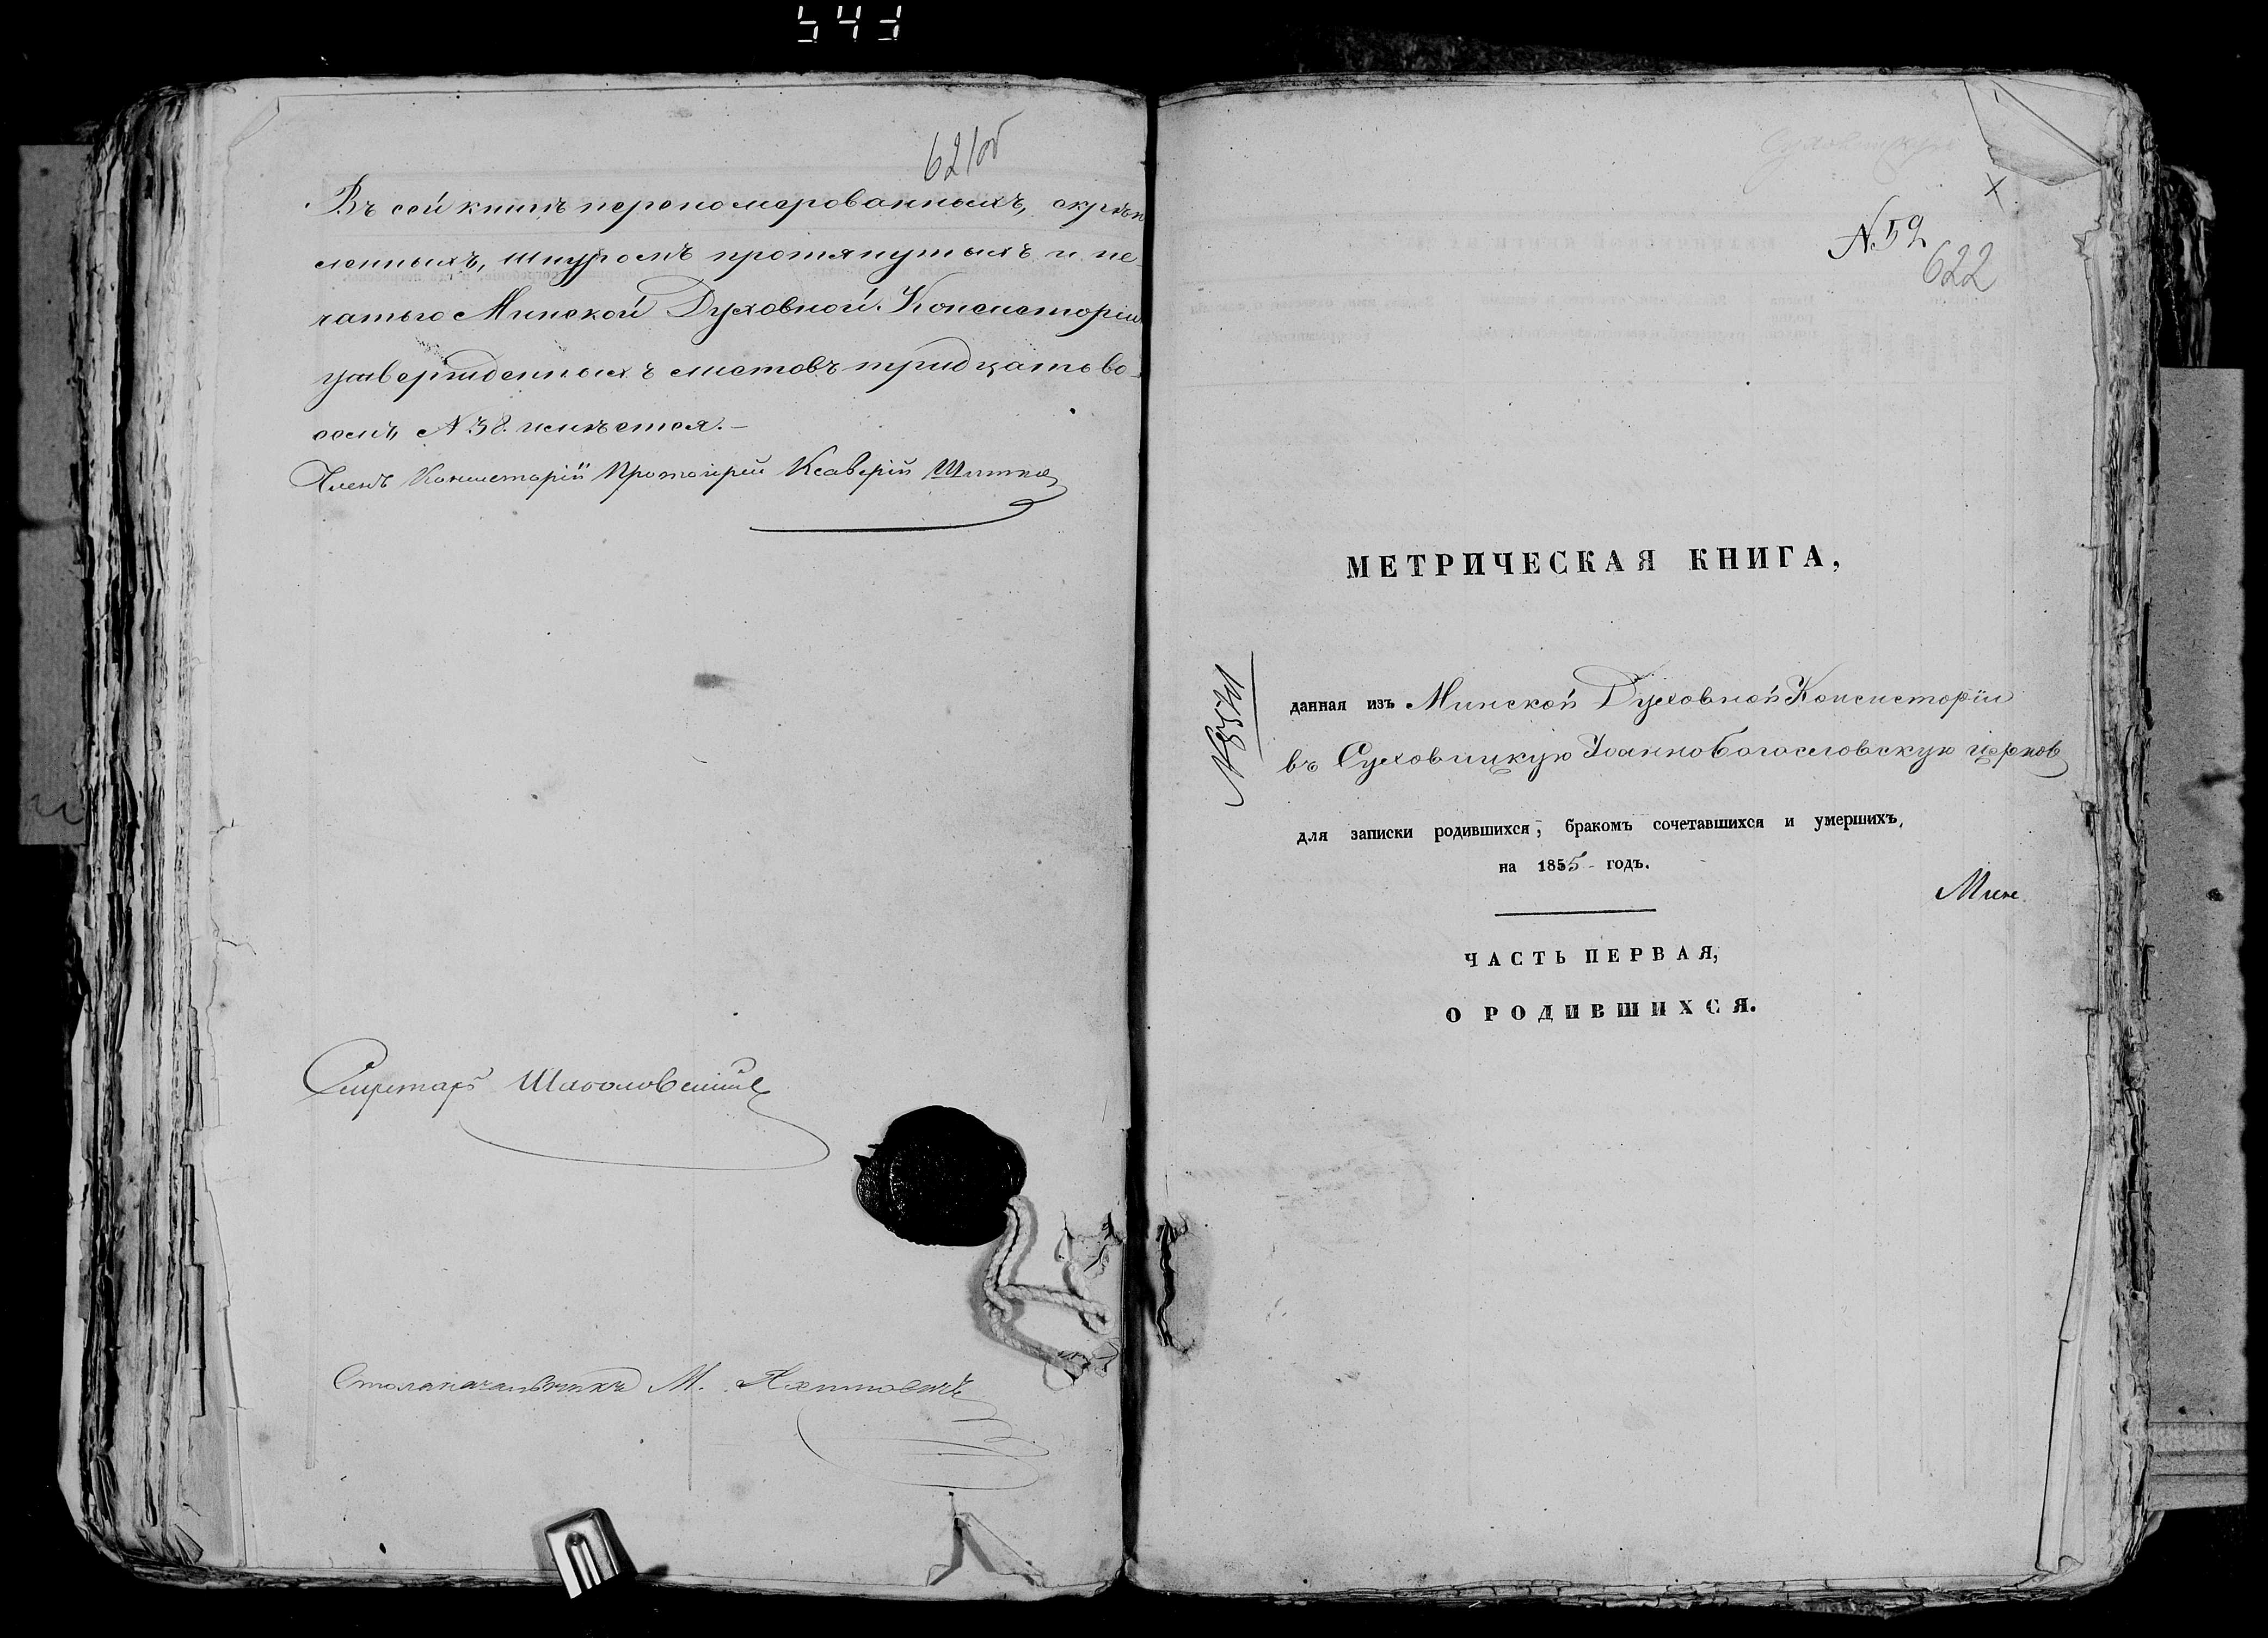 621об
Въ сей книгѣ перепомерованныхъ, скрѣп
ленныхъ, шнуромъ протянутыхъ и пе-
чатью Минской Духовной Консисторіи
утвержденныхъ листовъ тридцать во-
семь N 38. имѣется.-
Членъ Консисторіи Протоіерей Ксаверій
Секретарь
Столоначальникъ М.
N 52
622
МЕТРИЧЕСКАЯ КНИГА,
данная изъ Минской Духовной Консисторіи
въ Суховицкую Іоанно Богословскую церковь
для записки родившихся, бракомъ сочетавшихся и умершихъ,
на 1855 годъ.
ЧАСТЬ ПЕРВАЯ,
О РОДИВШИХСЯ.